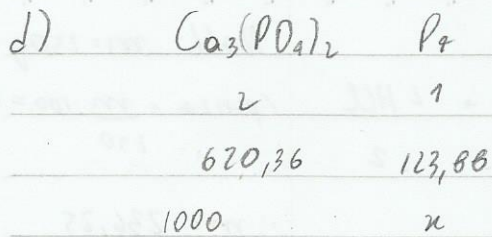 d) Ca3(PO4)2 P4
2 1
620,36 123,88
1000 x